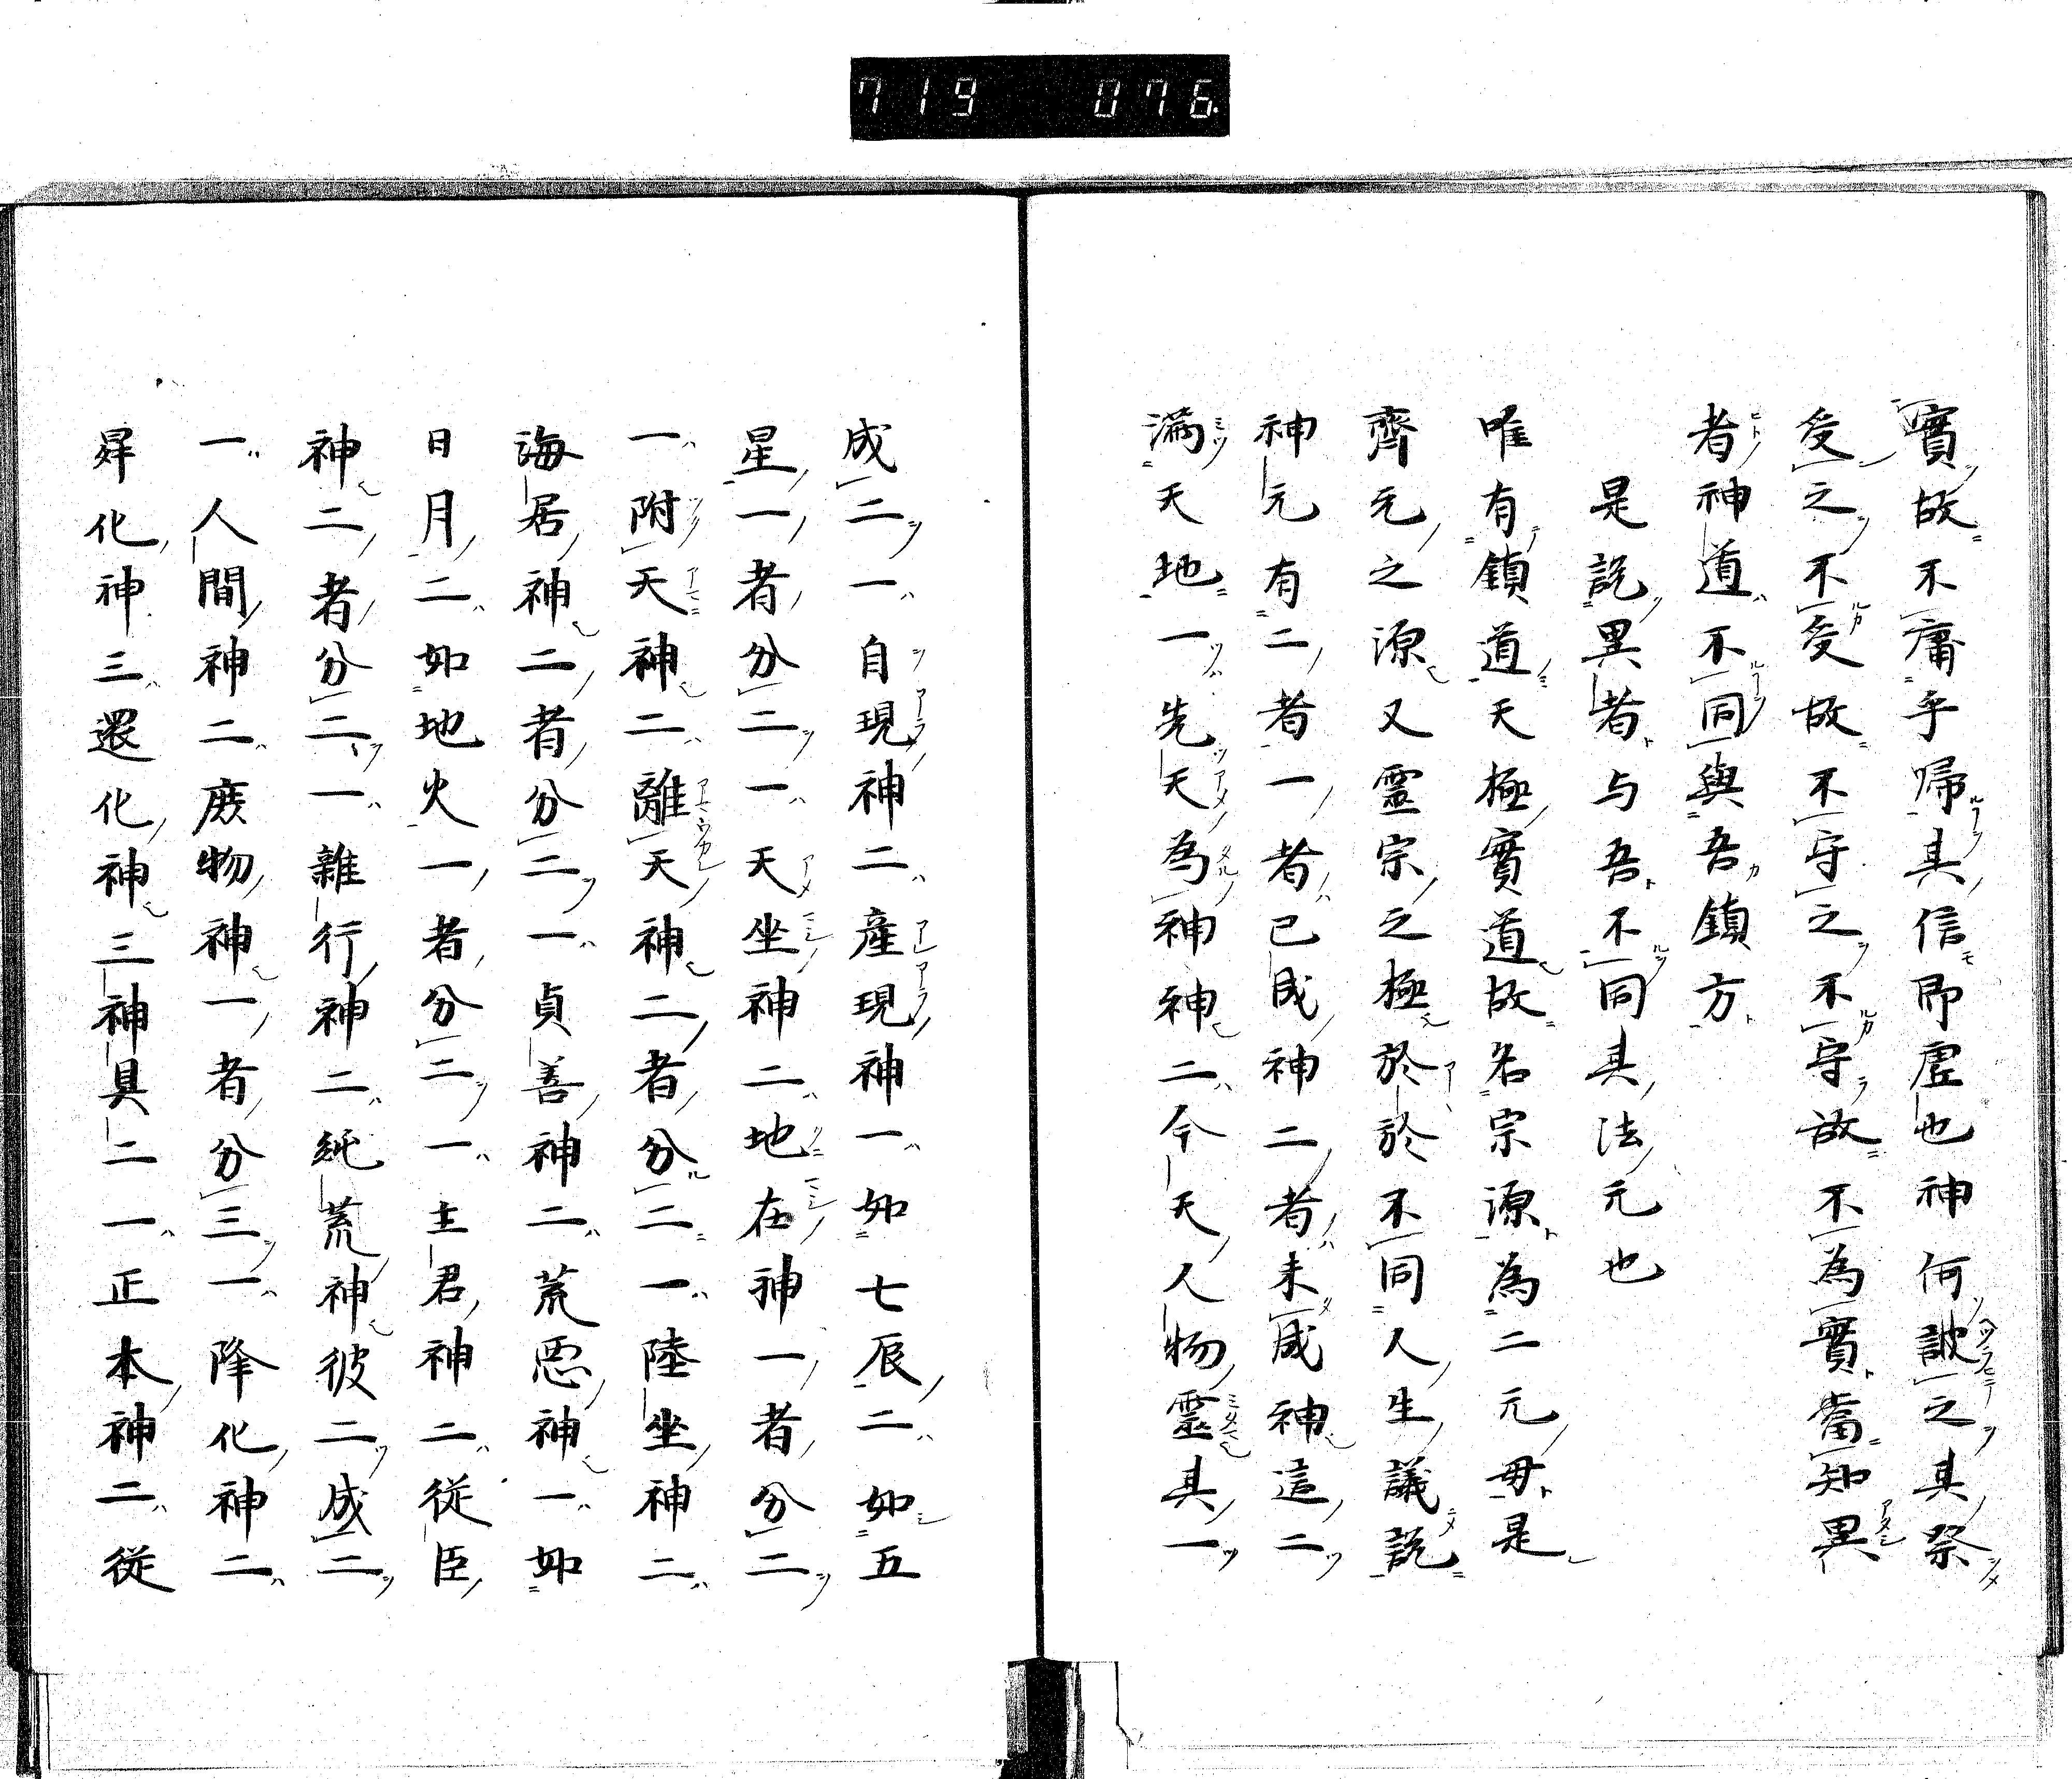 719 076.
實故不庸乎帰其信即虗也神何詖之其祭
受之不受故不守之不守故不為實當知異
者神道不同與吾鎮方
是説異者与吾不同其法元也
唯有鎮道天極實道故名宗源為二元毋是
齊元之源又靈宗之極於於不同人生議説
神元有二者一者已成神二者未成神這二
滿天地一先天為神神二今天人物靈其一
成二一自現神二産現神一如七辰二如五
星一者分二一天坐神二地在神一者分二
一附天神二離天神二者分二一陸坐神二
海居神二者分二一貞善神二荒悪神一如
日月二如地火一者分二一主君神二從臣
神二者分二一雜行神二純荒神彼二成二
一人間神二庶物神一者分三一降化神二
昇化神三還化神三神具二一正本神二從